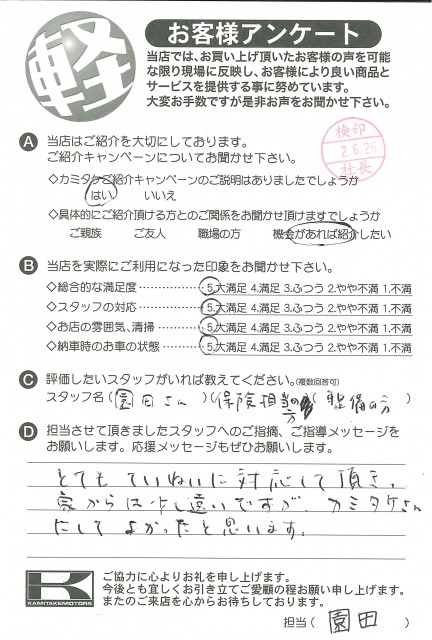 軽
お客様アンケート
当店では、お買い上げ頂いたお客様の声を可能
な限り現場に反映し、お客様により良い商品と
サービスを提供する事に努めています。
大変お手数ですが是非お声をお聞かせ下さい。
検印
2.6.26
社長
A 当店はご紹介を大切にしております。
ご紹介キャンペーンについてお聞かせ下さい。
◇カミタケご紹介キャンペーンのご説明はありましたでしょうか
はい いいえ
◇具体的にご紹介頂ける方とのご関係をお聞かせ頂けますでしょうか
ご親族 ご友人 職場の方 機会があれば紹介したい
B 当店を実際にご利用になった印象をお聞かせ下さい。
◇総合的な満足度……………5.大満足 4.満足 3.ふつう 2.やや不満 1.不満
◇スタッフの対応……………5.大満足 4.満足 3.ふつう 2.やや不満 1.不満
◇お店の雰囲気、清掃………5.大満足 4.満足 3.ふつう 2.やや不満 1.不満
◇納車時のお車の状態………5.大満足 4.満足 3.ふつう 2.やや不満 1.不満
C 評価したいスタッフがいれば教えてください。(複数回答可)
スタッフ名(園田さん)(保険担当の方)(整備の方)
D 担当させて頂きましたスタッフへのご指摘、ご指導メッセージを
お願いします。応援メッセージもぜひお願いします。
とてもていねいに対応して頂き、
家からは少し遠いですが、カミタケさん
にしてよかったと思います。
K
KAMITAKEMOTORS
ご協力に心よりお礼を申し上げます。
今後とも宜しくお引き立てご愛顧の程お願い申し上げます。
またのご来店を心からお待ちしております。
担当(園田)